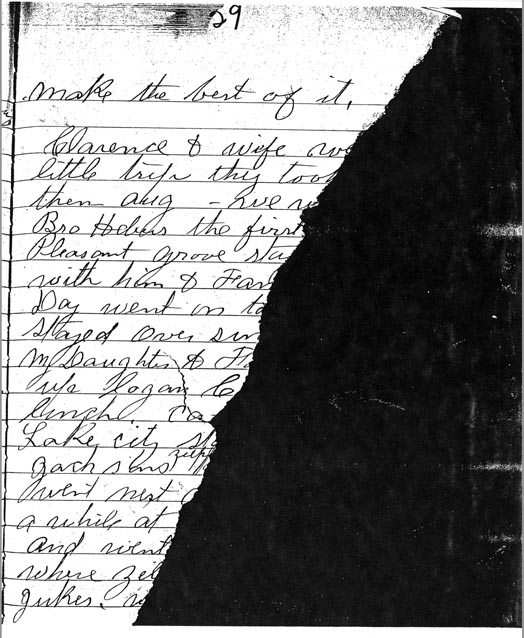 29
make the best of it.
Clarence & wife
little trip they took
then aug - we
Bro Hebers the first
Pleasant grove sta
with him & Fam
Day went on to
stayed over sun
m Daughter & F
up logan C
lunch. ca
Lake city st
jacksons
went next
a while at
and went
where zil
jukes.